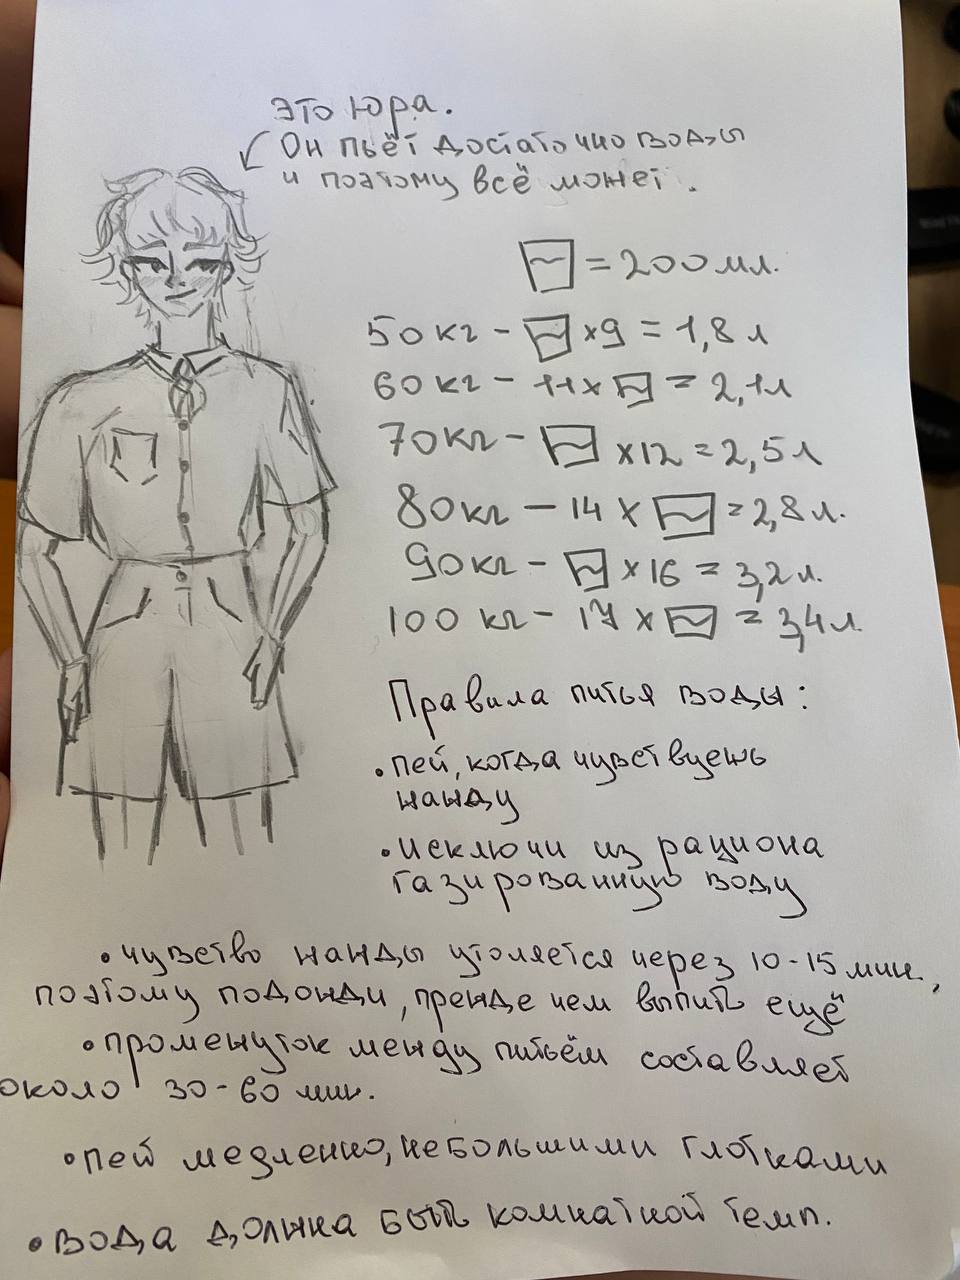 это Юра.
Он пьёт достаточно воды
и поэтому всё может.
= 200 мл.
50 кг - ×9 = 1,8 л
60 кг - 11 × = 2,1 л
70 кг - ×12 = 2,5 л
80 кг - 14 × = 2,8 л.
90 кг - ×16 = 3,2 л.
100 кг - 17 × = 3,4 л.
Правила питья воды:
• пей, когда чувствуешь
жажду
• исключи из рациона
газированную воду
• чувство жажды утоляется через 10-15 мин.,
поэтому подожди, прежде чем выпить ещё
• промежуток между питьём составляет
около 30-60 мин.
• пей медленно, небольшими глотками
• вода должна быть комнатной темп.